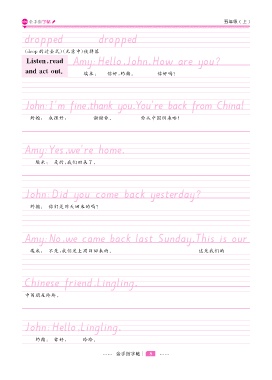 金手指字帖
五年级(上)
dropped dropped
(drop的过去式)(无意中)说掉落
Listen, read and act out.
Amy: Hello, John. How are you?
埃米: 你好,约翰。 你好吗?
John: I'm fine, thank you. You're back from China!
约翰: 我很好, 谢谢你。 你从中国回来啦!
Amy: Yes, we're home.
埃米: 是的,我们回家了。
John: Did you come back yesterday?
约翰: 你们是昨天回来的吗?
Amy: No, we came back last Sunday. This is our
埃米: 不是,我们是上周日回来的。 这是我们的
Chinese friend, Lingling.
中国朋友玲玲。
John: Hello Lingling.
约翰: 你好, 玲玲。
金手指字帖